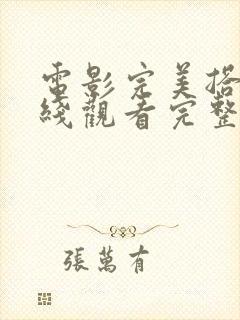 電影完美搭
綫觀看完整
張萬有